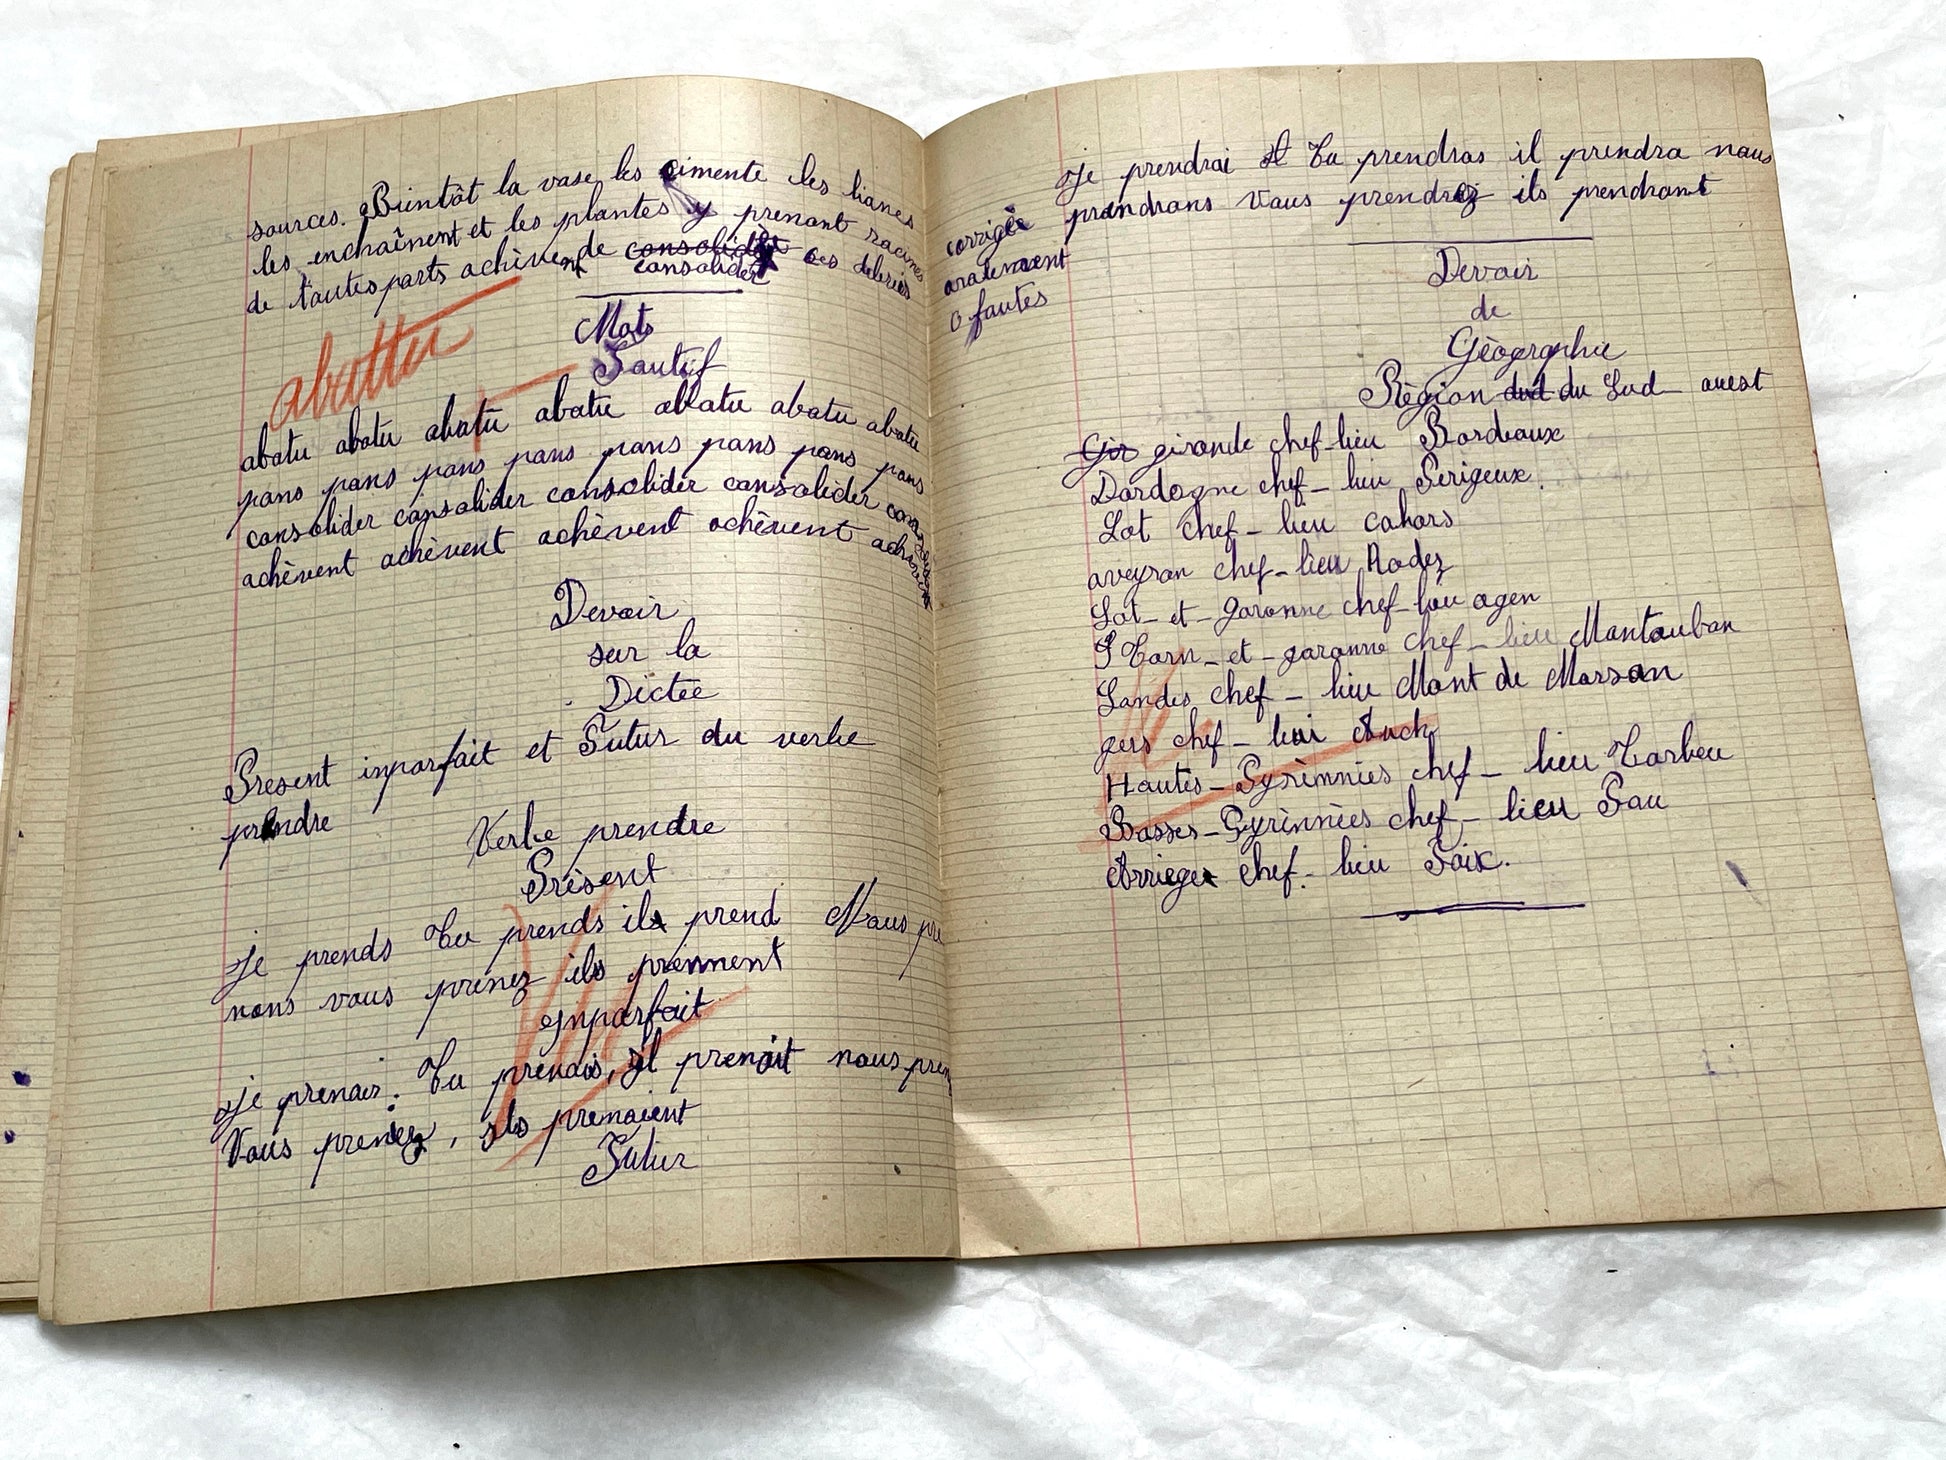 sources. Bientôt la vase les cimente les lianes
les enchaînent et les plantes y prenant racines
de toutes parts achèvent de consolider ces debries
consolider
Mots
Fautif
abattu
abatu abatu abatu abatu abatu abatu abatu
pans pans pans pans pans pans pans pans
consolider consolider consolider consolider consolider
achèvent achèvent achèvent achèvent achèvent
Devoir
sur la
Dictée
Present inparfait et Futur du verbe
prendre
Verbe prendre
Présent
je prends Tu prends il prend Nous pre
nons vous prenez ils prennent
inparfait
je prenais. Tu prenais, il prenait nous pren
Vous preniez, ils prenaient
Futur
je prendrai Tu prendras il prendra nous
prendrons Vous prendrez ils prendront
corrigée
oralement
0 fautes
Devoir
de
Géographie
Région dud du Sud-ouest
Gir gironde chef-lieu Bordeaux
Dordogne chef-lieu Perigeux.
Lot chef-lieu cahors
aveyron chef-lieu Rodez
Lot-et-garonne chef-lieu agen
Tarn-et-garonne chef-lieu Montauban
Landes chef-lieu Mont de Marsan
gers chef-lieu Auch
Hautes-Pyrènnées chef-lieu Tarbeu
Basses-Pyrènnèes chef-lieu Pau
Arriege chef-lieu Foix.